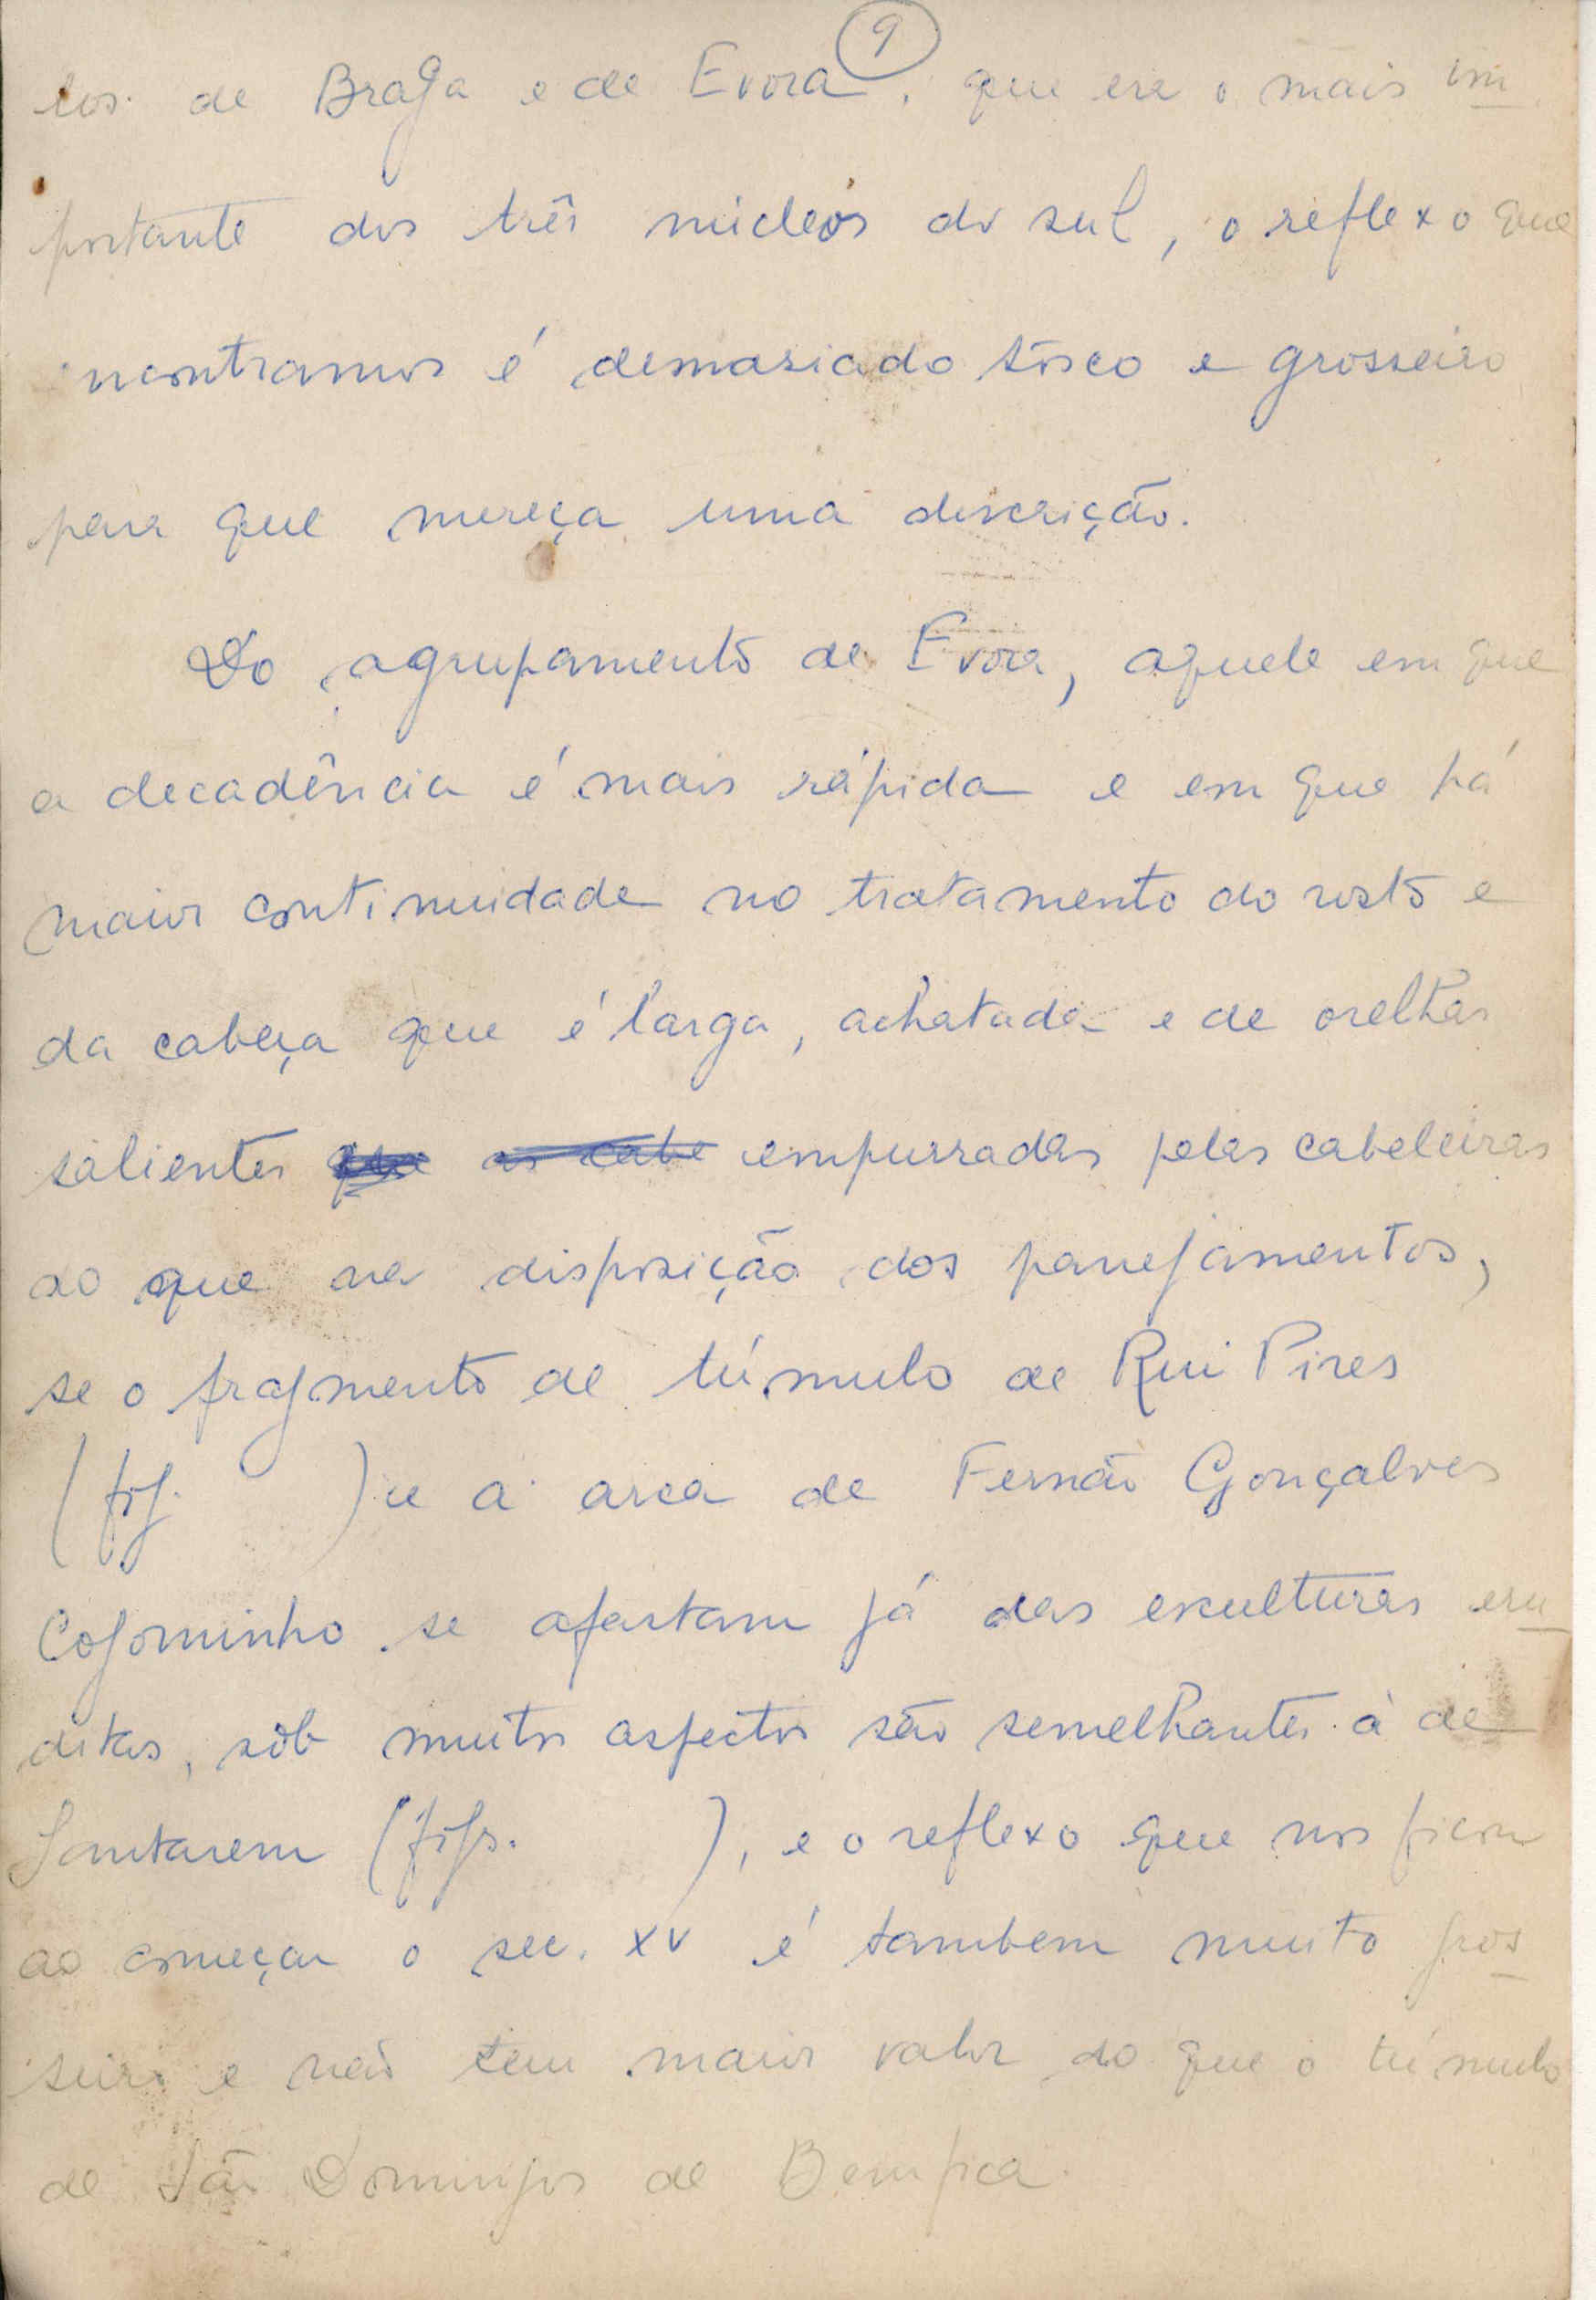 9
los de Braga e de Evora, que era o mais im
portante dos três núcleos do sul, o reflexo que
encontramos é demasiado tôsco e grosseiro
para que mereça uma descrição.
Do agrupamento de Evora, aquele em que
a decadência é mais rápida e em que há
maior continuidade no tratamento do rosto e
da cabeça que é larga, achatada e de orelhas
salientes que as cabe empurradas pelas cabeleiras
do que na disposição dos panejamentos,
se o fragmento de túmulo de Rui Pires
(fig. ) e a arca de Fernão Gonçalves
Cogominho se afastam já das esculturas eru
ditas, sôb muitos aspectos são semelhantes à de
Santarem (figs. ), e o reflexo que nos ficou
ao começar o sec. XV é tambem muito gros
seiro e não tem maior valor do que o túmulo
de São Domingos de Bemfica.